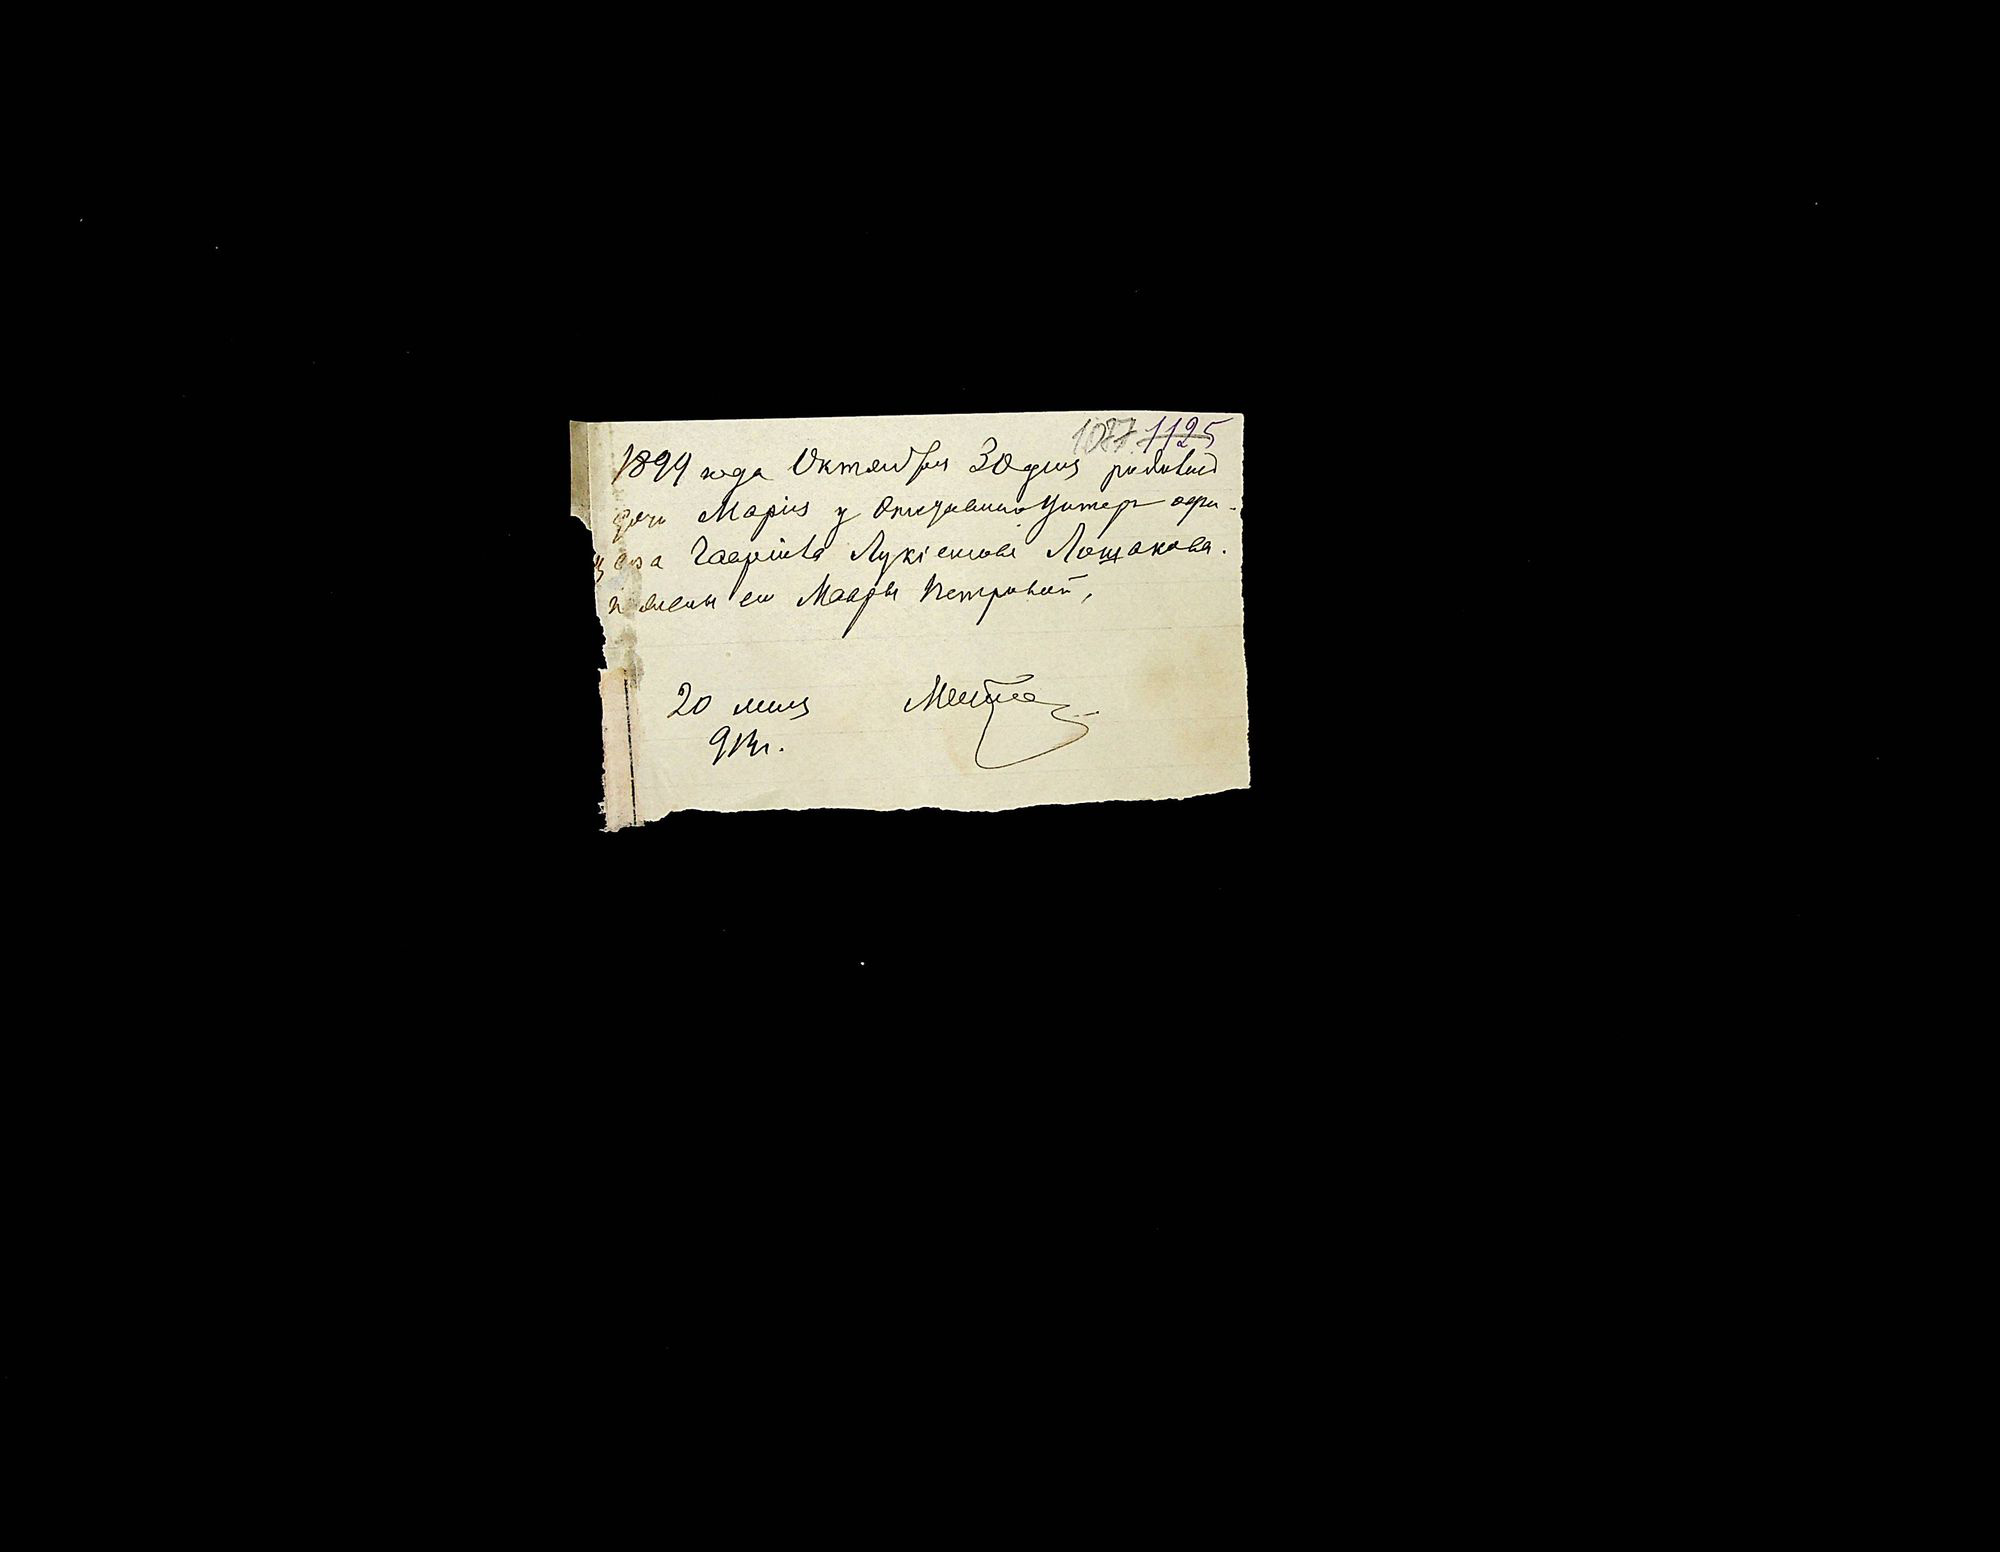 1077 1125
1899 года Октября 30 дня родилась
дочь Марія у Отставного Унтеръ офи-
цера Гавріила Лукіянова Лошакова
и жены его Мавры Петровой,
20 мая
913 г.